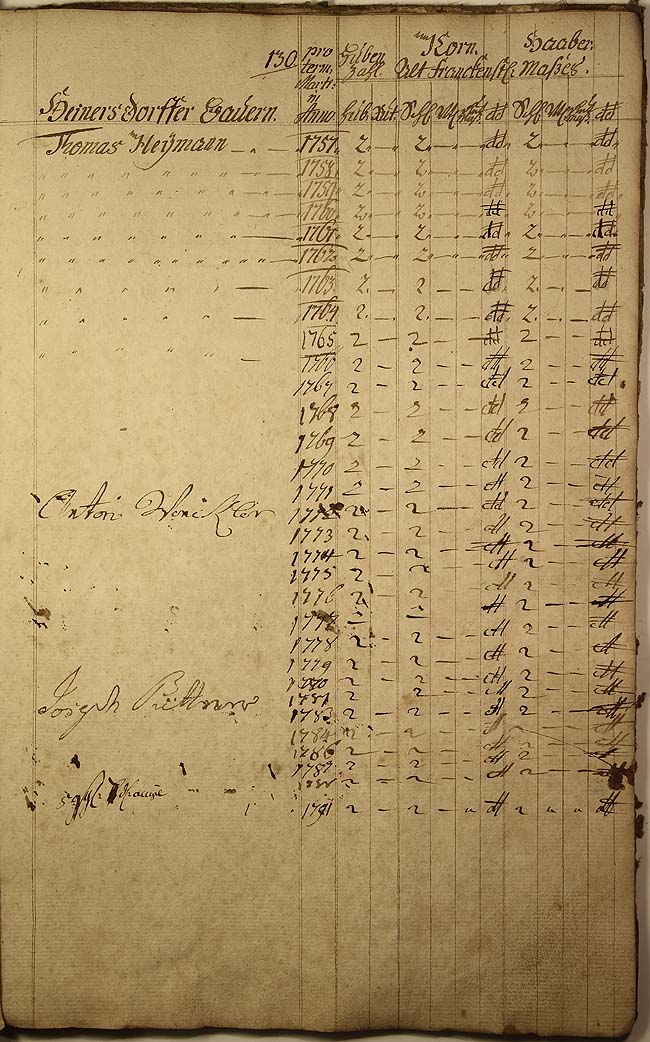 130. pro Huben Korn. Haaber.
term. Zahl. Alt Franckenst: Maßes.
Marti:
Heiners Dorffer Bauern. Anno. Hub. Rut. Schl dd Schl dd
Thomas Heÿmann 1757. 2. 2. dd 2 dd
1758. 2. 2. dd 2. dd
1759. 2. 2. dd 2. dd
1760. 2. 2. dd 2. dd
1761. 2. 2. dd 2. dd
1762. 2. 2. dd 2 dd
1763. 2. 2 dd 2. dd
1764 2. 2. dd 2. dd
1765 2 - 2 - dd 2 - dd
1766 2 - 2 - dd 2 - dd
1767 2 - 2 - dd 2 - dd
1768 2 - 2 - dd 2 - dd
1769 2 - 2 - dd 2 - dd
1770 2 - 2 - dd 2 - dd
1771 2 - 2 - dd 2 - dd
Anton 2 - 2 - dd 2 - dd
1773 2 2 - dd 2 - dd
1774 2 - 2 - dd 2 - dd
1775 2 - 2 dd 2 - dd
1776 2 - 2 - dd 2 - dd
1777 2 - 2 - dd 2 - dd
1778 2 - 2 - dd 2 - dd
1779 2 - 2 - dd 2 - dd
1780 2 - 2 - dd 2 - dd
1781 2 - 2 - dd 2 - dd
Joseph 1783 2 - 2 - dd 2 - dd
1784 2 - 2 - dd
1786 2 - 2 - dd 2 - dd
1787 2 - 2 - dd 2 - dd
Krause 2 - 2 -
1791 2 - 2 - dd 2 dd